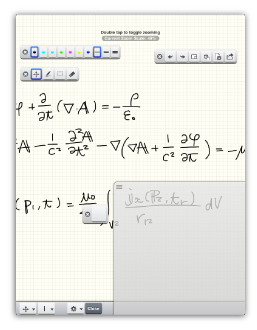 Double tap to toggle zooming
φ + ∂/∂t (∇·A) = - ρ/ε₀
A - 1/c² ∂²A/∂t² - ∇(∇A + 1/c² ∂φ/∂t) = -μ
(r₁, t) = μ₀ ∫ jₓ(r₂, tᵣ)/r₁₂ dV
Close